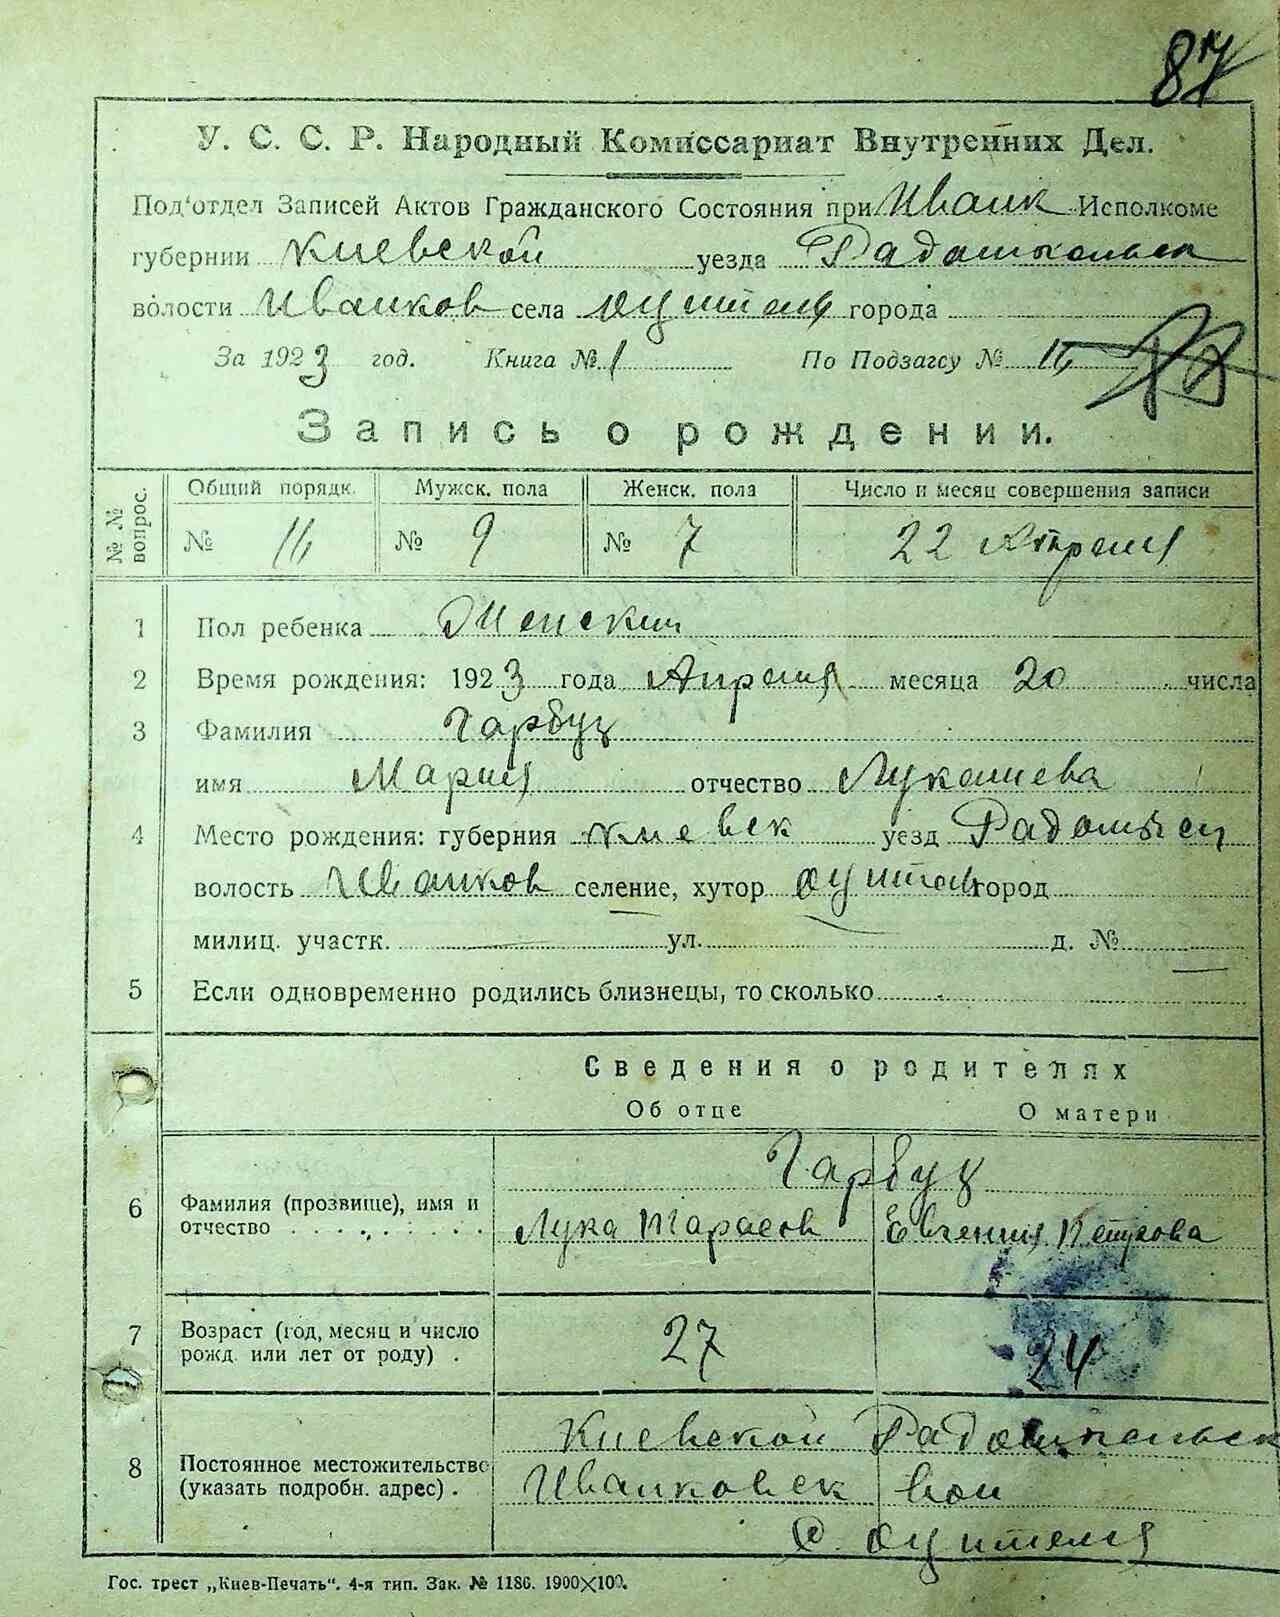 87
У. С. С. Р. Народный Комиссариат Внутренних Дел.
Под'отдел Записей Актов Гражданского Состояния при Иванк Исполкоме
губернии Киевской уезда Радомысльск
волости Иванков села города
За 1923 год. Книга № 1 По Подзагсу № 16
Запись о рождении.
№ № вопрос.
Общий порядк. Мужск. пола Женск. пола Число и месяц совершения записи
№ 16 № 9 № 7 22 Апреля
1 Пол ребенка Женский
2 Время рождения: 1923 года Апреля месяца 20 числа
3 Фамилия Гарбуз
имя Мария отчество Лукашева
4 Место рождения: губерния Киевск уезд
волость Иванков селение, хутор город
милиц. участк. ул. д. №
5 Если одновременно родились близнецы, то сколько
Сведения о родителях
Об отце О матери
Гарбуз
6 Фамилия (прозвище), имя и
отчество Лука Тарасов Евгения Петрова
7 Возраст (год, месяц и число
рожд. или лет от роду) . 27 24
Киевской Радомысльск
8 Постоянное местожительство
(указать подробн. адрес) . Иванковск вол
с.
Гос. трест „Киев-Печать“. 4-я тип. Зак. № 1186. 1900×100.